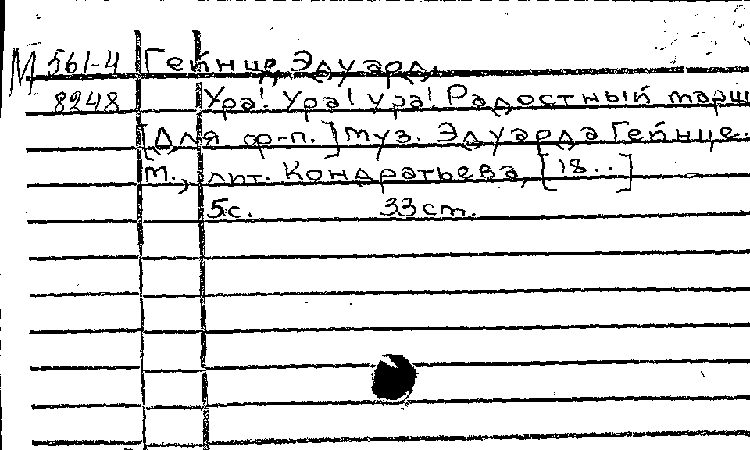 М 561-4 Гейнце, Эдуард.
8248 Ура! Ура! Ура! Радостный марш
[Для ф-п.] Муз. Эдуарда Гейнце.
М., лит. Кондратьева, [18..]
5с. 33 ст.